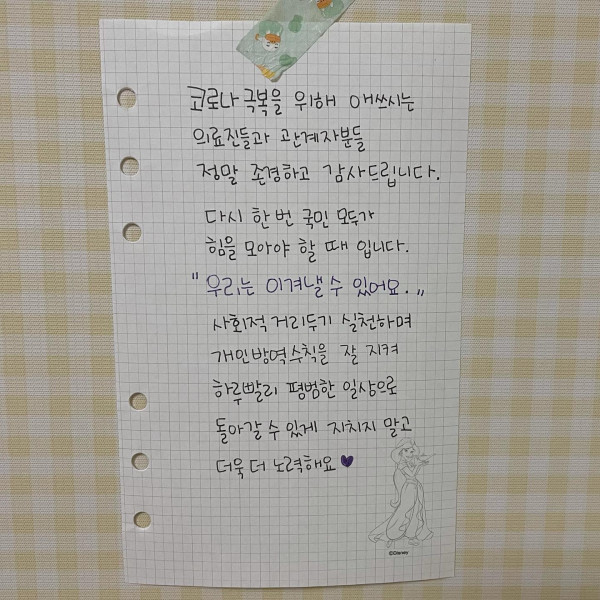 코로나 극복을 위해 애쓰시는
의료진들과 관계자분들
정말 존경하고 감사드립니다.
다시 한 번 국민 모두가
힘을 모아야 할 때 입니다.
"우리는 이겨낼 수 있어요."
사회적 거리두기 실천하며
개인방역수칙을 잘 지켜
하루빨리 평범한 일상으로
돌아갈 수 있게 지치지 말고
더욱 더 노력해요♥
©Disney